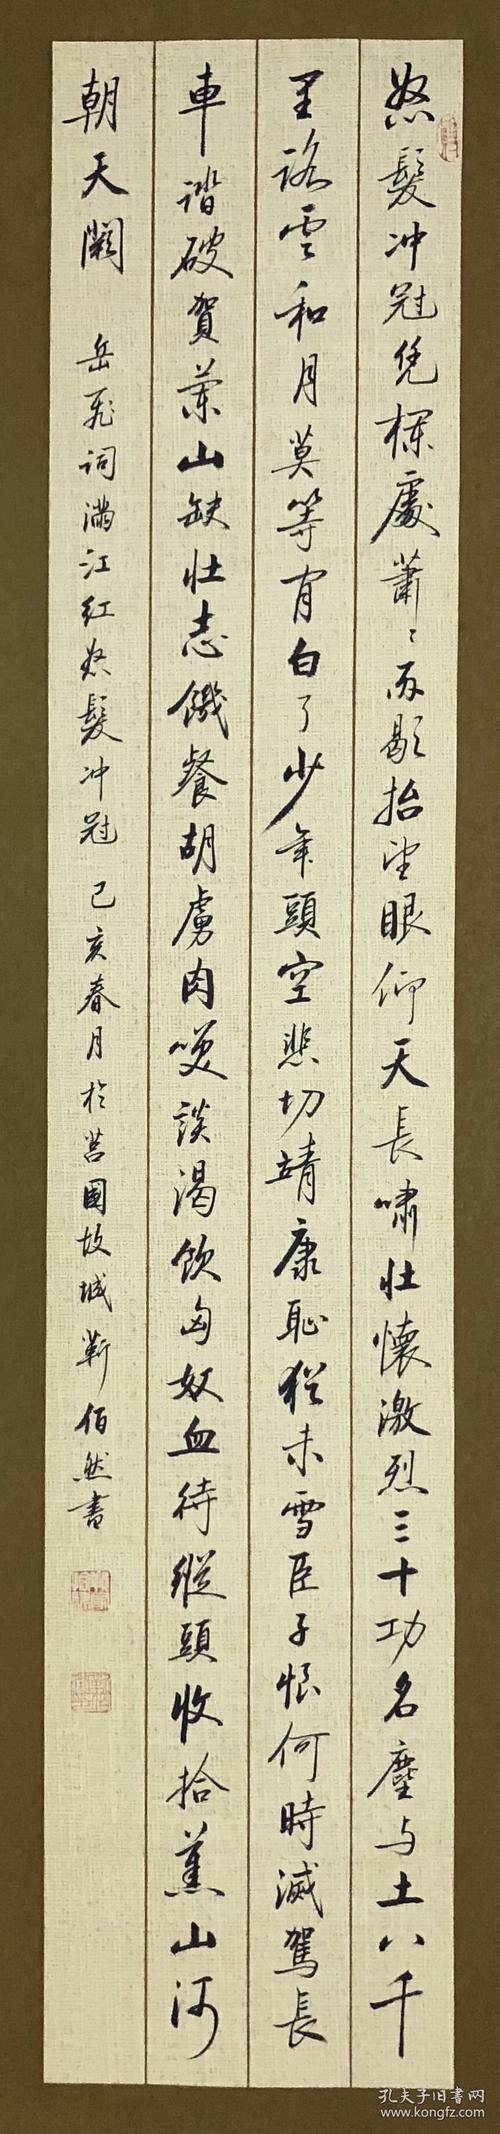 怒髮冲冠凭欄處蕭〻雨歇抬望眼仰天長嘯壯懷激烈三十功名塵与土八千
里路雲和月莫等閒白了少年頭空悲切靖康恥猶未雪臣子恨何時滅駕長
車踏破賀蘭山缺壯志饑餐胡虜肉咲談渴飲匈奴血待從頭收拾舊山河
朝天闕 岳飛詞滿江紅怒髮冲冠 己亥春月於莒國故城 靳佰然書
孔夫子旧书网
www.kongfz.com